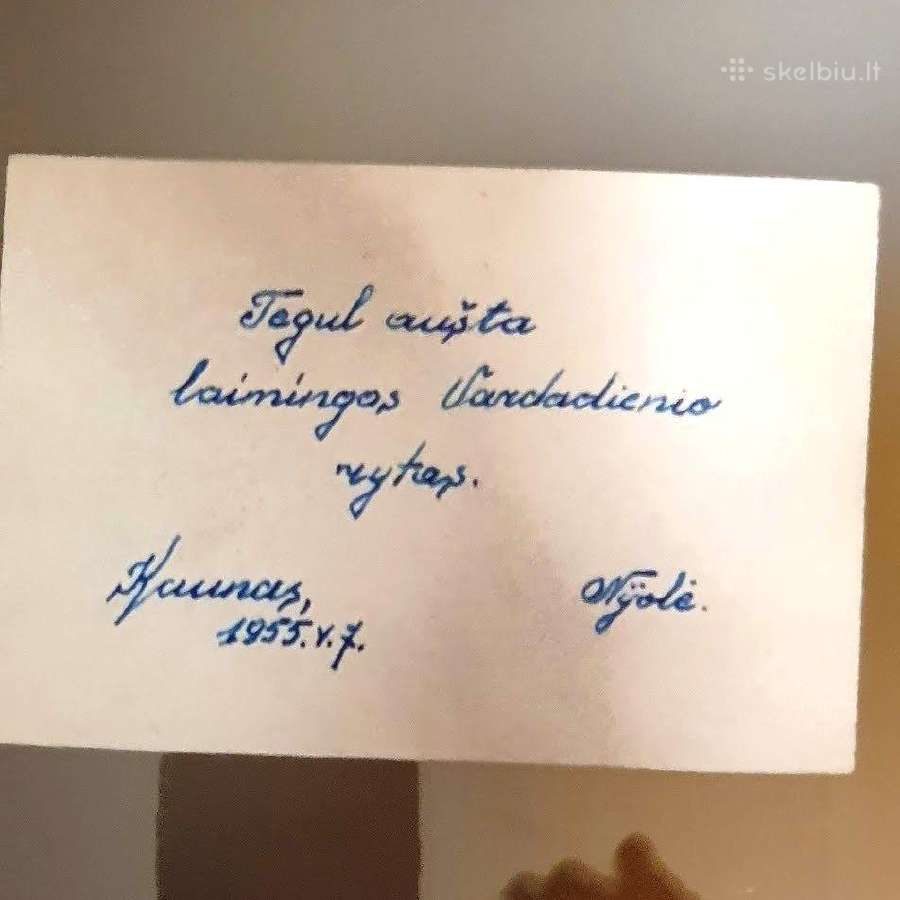 skelbiu.lt
Tegul aušta
laimingos Vardadienio
rytas.
Kaunas,
1955.V.7.
Nijolė.